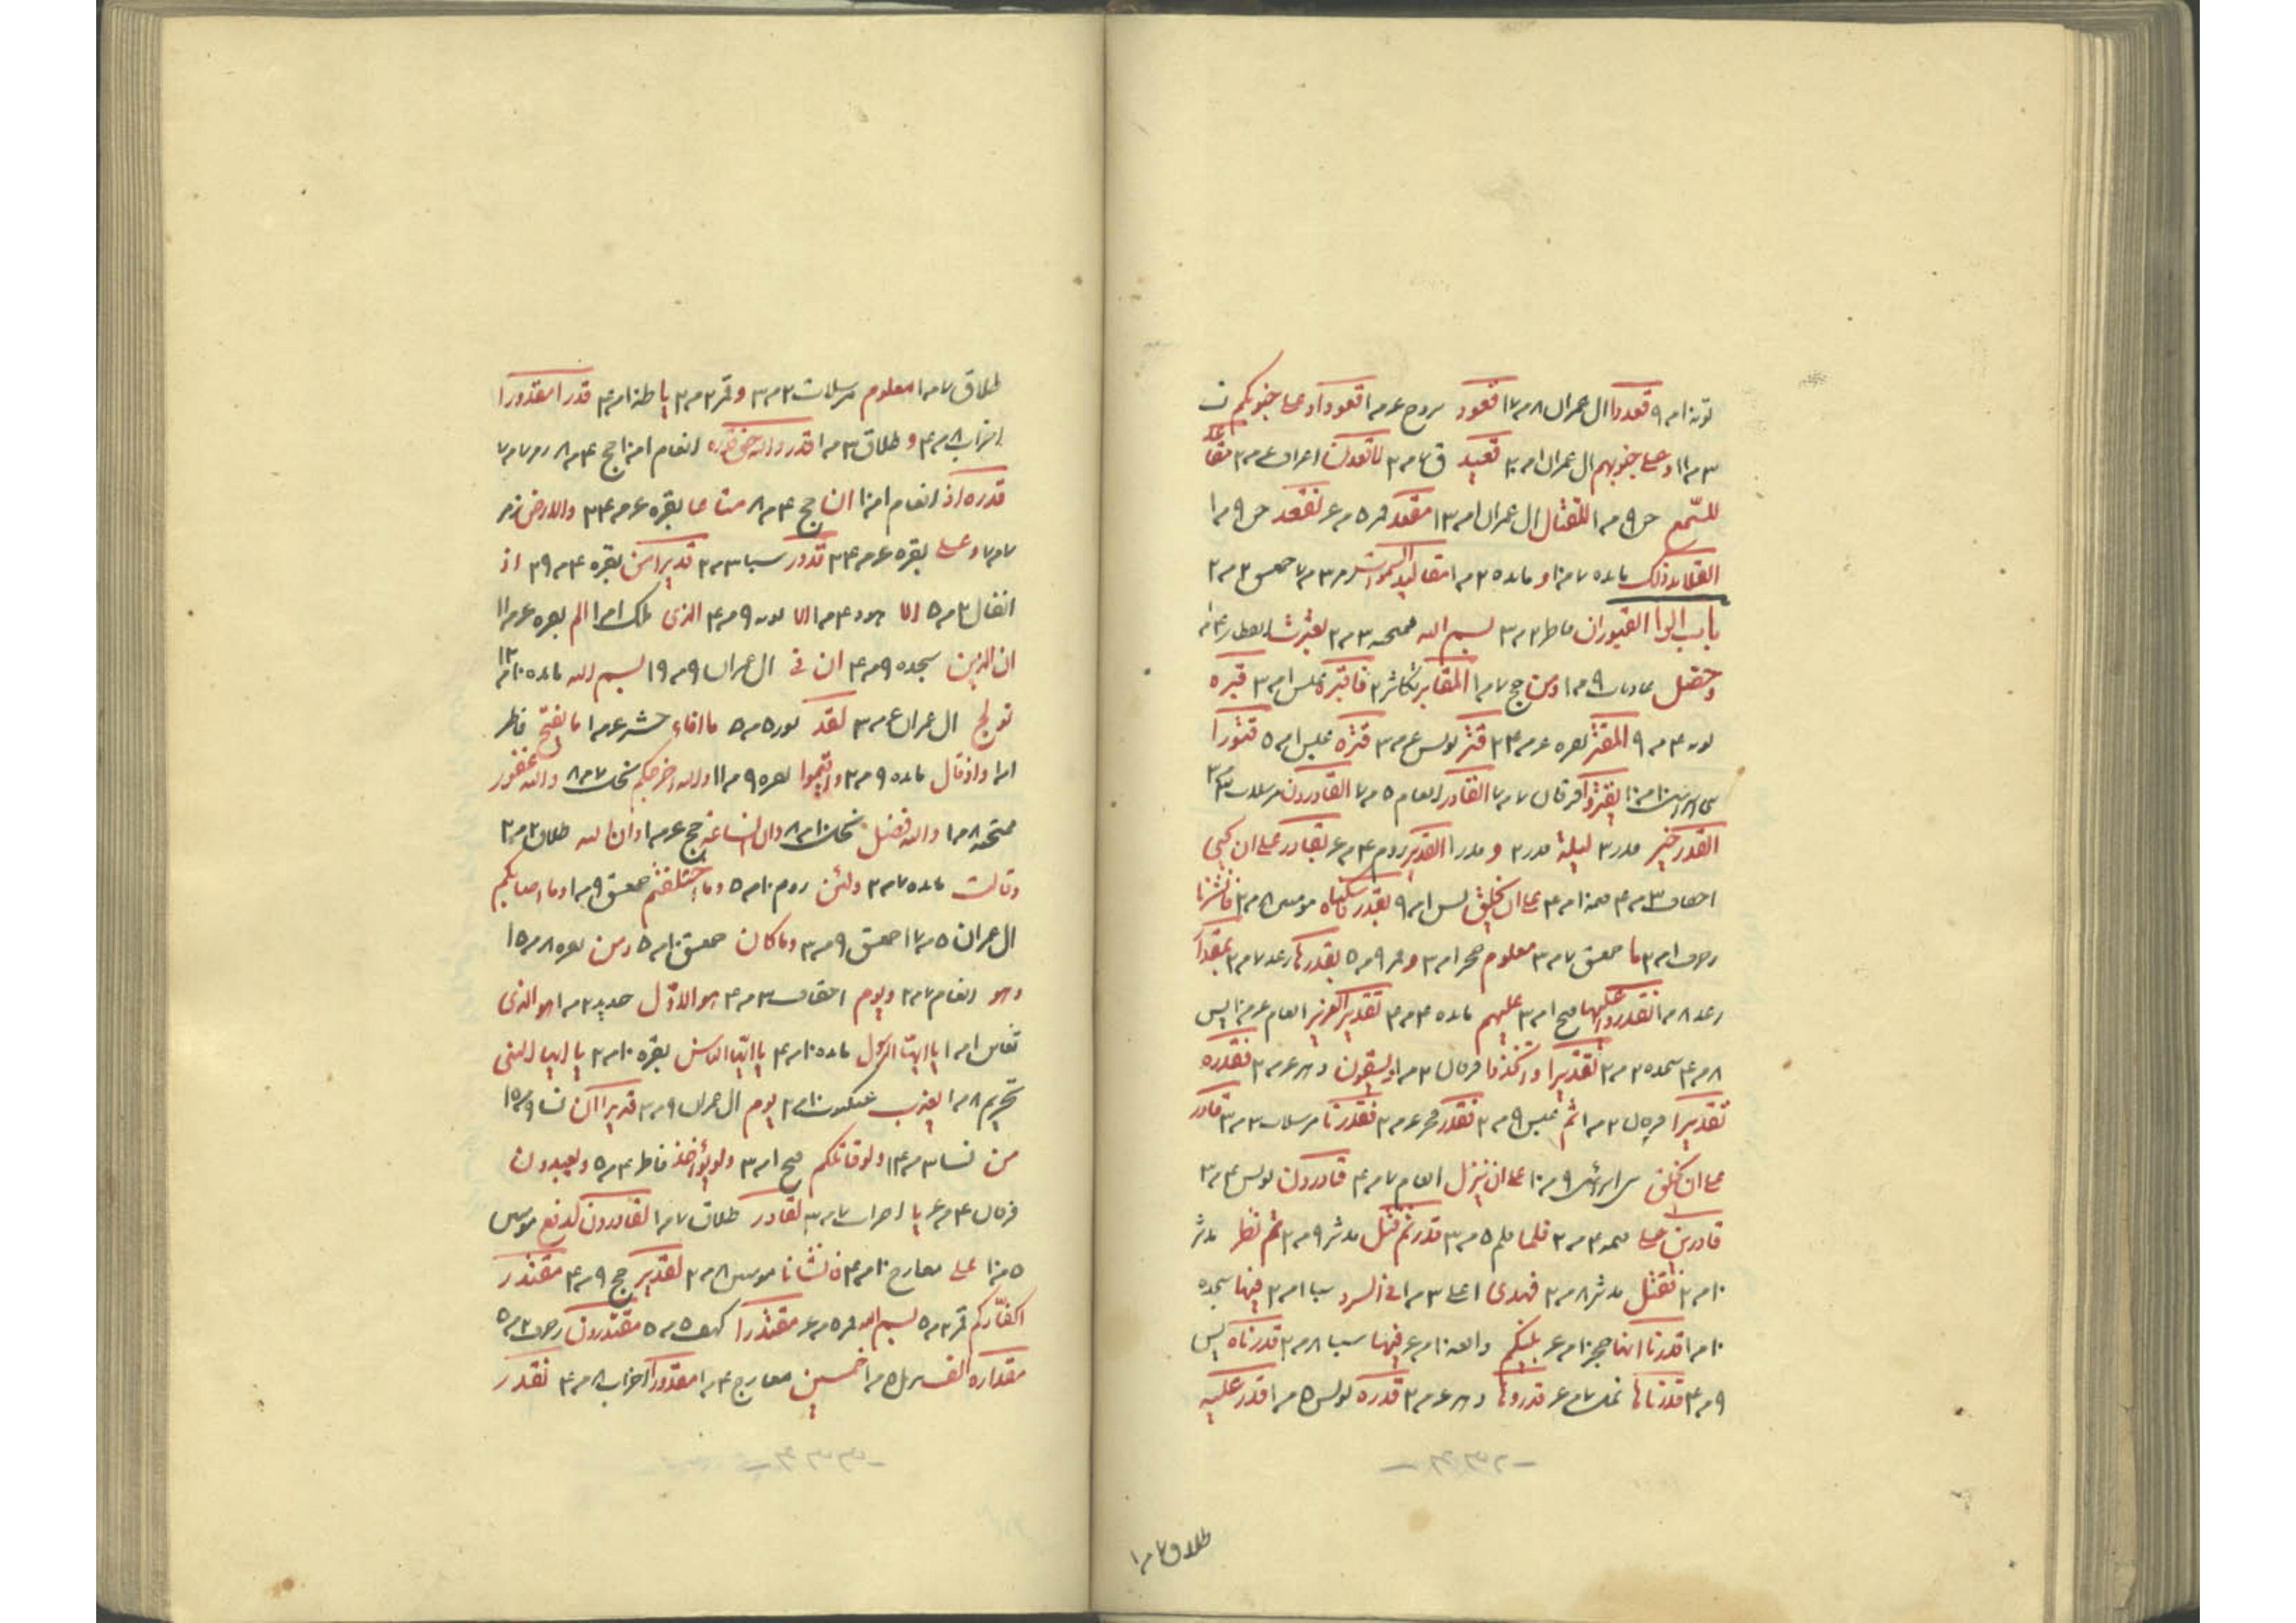 توبه ۱۰ م ۹ قعدوا ال عمران ۸ م ۱۷ قعود بروج ۶ م ۱ قعودا وعلى جنوبكم ن
۳ م ۱۱ وعلى جنوبهم ال عمران ۱ م ۲۰ قعيد ق ۷ م ۲ لاقعدن اعراف ۴ م ۲ مقاعد
للسمع جن ۹ م ۱ للقتال ال عمران ۱ م ۱۳ مقعد قمر ۵ م ۶ نقعد جن ۹ م ۱
القلائد ذلك مائده ۷ م ۱۰ و مائده ۲۵ م ۱ مقاليد السموات زمر ۳ م ۷ حمعسق ۲ م ۲
باب الراء القبور ان فاطر ۲ م ۳ بسم الله ممتحنه ۳ م ۲ بعثرت انفطار
وحصل عاديات ۹ م ۱ ومن حج ۷ م ۱ المقابر تكاثر ۲ فاقبره عبس ۱ م ۳ قبره
توبه ۴ م ۹ المقتر بقره ۶ م ۲۴ قتر يونس ۶ م ۳ قتره عبس ۱ م ۵ قتورا
يقتروا فرقان ۷ م ۷ القادر انعام ۵ م ۷ القادرون مرسلات ۳ م ۲
القدر خير قدر ۳ ليلة قدر ۲ و قدر ۱ القدير روم ۴ م ۶ بقادر على ان يحيي
احقاف ۳ م ۴ قيمه ۱۰ م ۴ على ان يخلق يس ۱ م ۹ بقدر فاسكناه مومنين ۸ م ۲ فانشرنا
زخرف ۱ م ۲ ما حمعسق ۷ م ۳ معلوم حجر ۱ م ۳ و قمر ۹ م ۵ بقدرها رعد ۷ م ۲ بمقدار
رعد ۸ م ۱ تقدروا عليها فتح ۱ م ۳ عليهم مائده ۴ م ۴ تقدير العزيز انعام ۶ م ۱۰ يس
۸ م ۴ سجده ۲ م ۲ تقديرا واتخذوا فرقان ۲ م ۱ ويسقون دهر ۶ م ۲ فقدره
تقديرا فرقان ۲ م ۱ ثم عبس ۹ م ۲ فقدر فجر ۶ م ۲ فقدرنا مرسلات ۳ م ۳ قادر
على ان يخلق ۹ م ۱۰ على ان ينزل انعام ۷ م ۴ قادرون يونس ۴ م ۳
قادرين على قيمه ۴ م ۲ فلما قلم ۵ م ۳ قدر ثم قتل مدثر ۹ م ۲ ثم نظر مدثر
۱۰ م ۲ فقتل مدثر ۸ م ۲ فهدى اعلى ۳ م ۱ في السرد سبا ۱ م ۲ فيها سجده
۱۰ م ۱ قدرنا انها حجر ۱۰ م ۶ بينكم واقعه ۱۰ م ۶ فيها سبا ۸ م ۲ قدرناه يس
۹ م ۴ قدرناها نمل ۷ م ۶ قدروها دهر ۶ م ۲ قدره يونس ۵ م ۱ قدر عليه
طلاق ۷ م ۱
طلاق ۷ م ۱ معلوم مرسلات ۲ م ۳ و قمر ۲ م ۲ يا طه ۱۰ م ۴ قدرا مقدورا
احزاب ۸ م ۴ و طلاق ۳ م ۱ قدروا الله حق قدره انعام ۱ م ۱۰ حج ۴ م ۸ زمر ۷ م ۷
قدره اذ انعام ۱ م ۱۰ ان حج ۴ م ۸ متاعا بقره ۶ م ۲۴ والارض زمر
۷ م ۷ وعلى بقره ۶ م ۲۴ قدور سبا ۳ م ۲ قدير امن بقره ۴ م ۳۹ اذ
انفال ۲ م ۵ الا هود ۴ م ۱ الا توبه ۹ م ۴ الذي ملك ۱ م ۱ الم بقره ۶ م ۱۱
ان الذين سجده ۹ م ۴ ان في ال عمران ۹ م ۱۹ بسم الله مائده ۱۰ م ۱۲
تولج ال عمران ۶ م ۳ لقد نور ۵ م ۵ ما افاء حشر ۶ م ۱ ما يفتح فاطر
۱ م ۱ واذ قال مائده ۹ م ۲ واقيموا بقره ۹ م ۱۱ والله اخرجكم نحل ۷ م ۸ والله غفور
ممتحنه ۸ م ۱ والله فضل نحل ۱۰ م ۸ وان الساعة حج ۶ م ۱ وان الله طلاق ۲ م ۲
وقالت مائده ۷ م ۲ ولئن روم ۱۰ م ۵ وما اختلفتم حمعسق ۹ م ۱ وما اصابكم
ال عمران ۵ م ۱۷ حمعسق ۹ م ۳ وما كان حمعسق ۱۰ م ۵ ومن بقره ۸ م ۱۵
وهو انعام ۷ م ۲ ويوم احقاف ۳ م ۴ هو الاول حديد ۲ م ۱ هو الذي
تغابن ۱ م ۱ يا ايها الرسول مائده ۱۰ م ۴ يا ايها الناس بقره ۱۰ م ۲ يا ايها النبي
تحريم ۸ م ۱ يعذب عنكبوت ۱۰ م ۲ يوم ال عمران ۹ م ۳ قديرا ان نسا ۹ م ۱۵
من نسا ۳ م ۱۴ ولو قاتلكم فتح ۱ م ۳ ولو يؤاخذ فاطر ۴ م ۵ ويعبدون
فرقان ۴ م ۶ يا احزاب ۷ م ۳ لقادر طلاق ۷ م ۱ لقادرون ادفع مومنين
۵ م ۱۰ على معارج ۱۰ م ۴ فانشانا مومنين ۸ م ۲ لقدير حج ۹ م ۴ مقتدر
اكفاركم قمر ۲ م ۵ بسم الله قمر ۵ م ۶ مقتدرا كهف ۵ م ۵ مقتدرون زخرف ۲ م ۵
مقداره الف تنزيل ۵ م ۱ خمسين معارج ۴ م ۱ مقدورا احزاب ۸ م ۴ نقدر